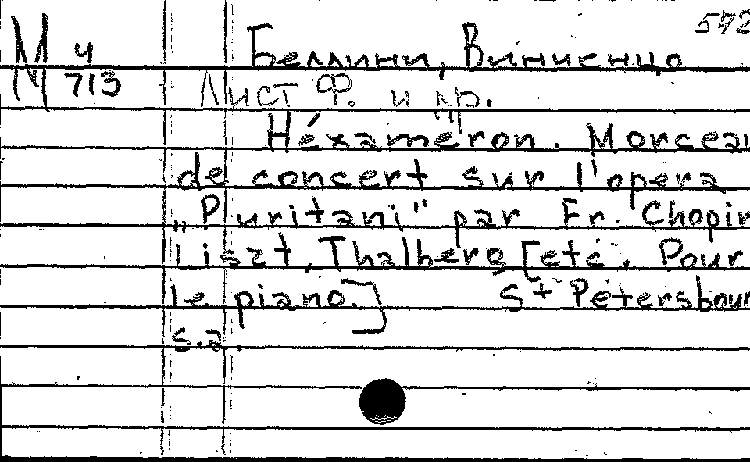 592
М 4/713
Беллини, Винченцо
Лист Ф. и др.
Héxaméron. Morceau
de concert sur l'opera
„Puritani" par Fr. Chopin
Liszt, Thalberg [etc. Pour
le piano.] St Pétersbour
s.a.